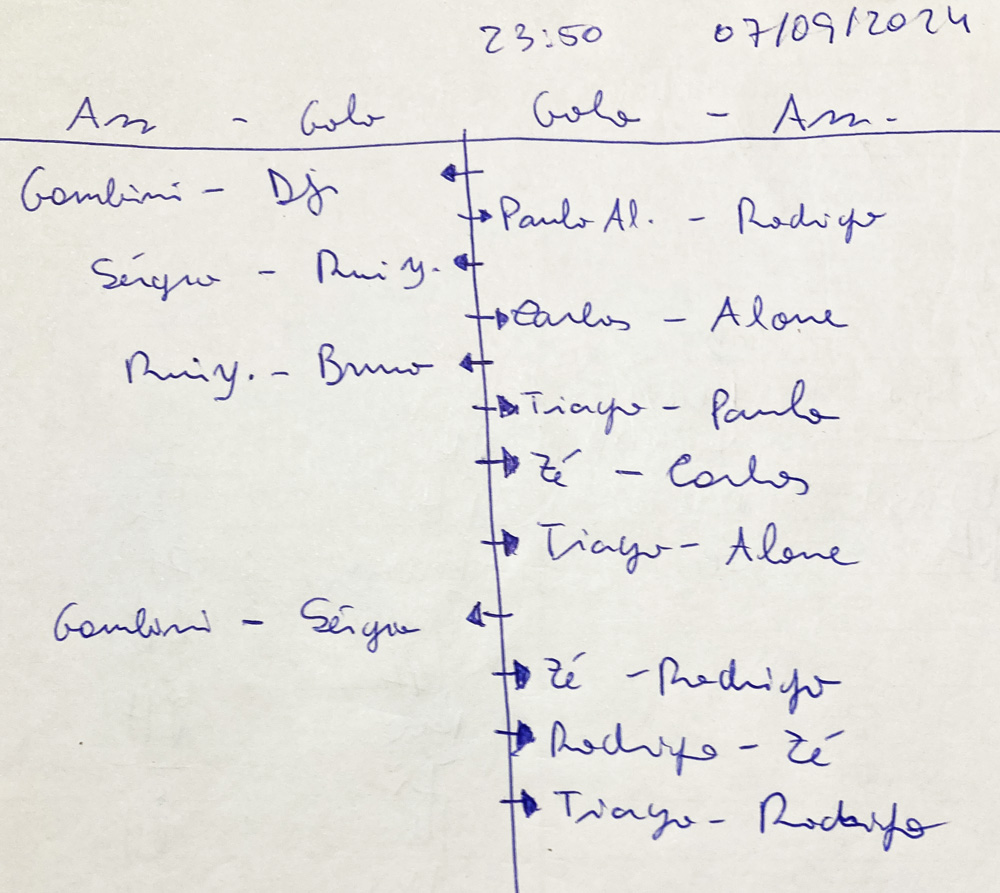 23:50 07/09/2024
Ass - Golo Golo - Ass.
Gambini - Dj
Paulo Al. - Rodrigo
Sérgio - Rui Y.
Carlos - Alone
Rui Y. - Bruno
Tiago - Paulo
Zé - Carlos
Tiago - Alone
Gambini - Sérgio
Zé - Rodrigo
Rodrigo - Zé
Tiago - Rodrigo